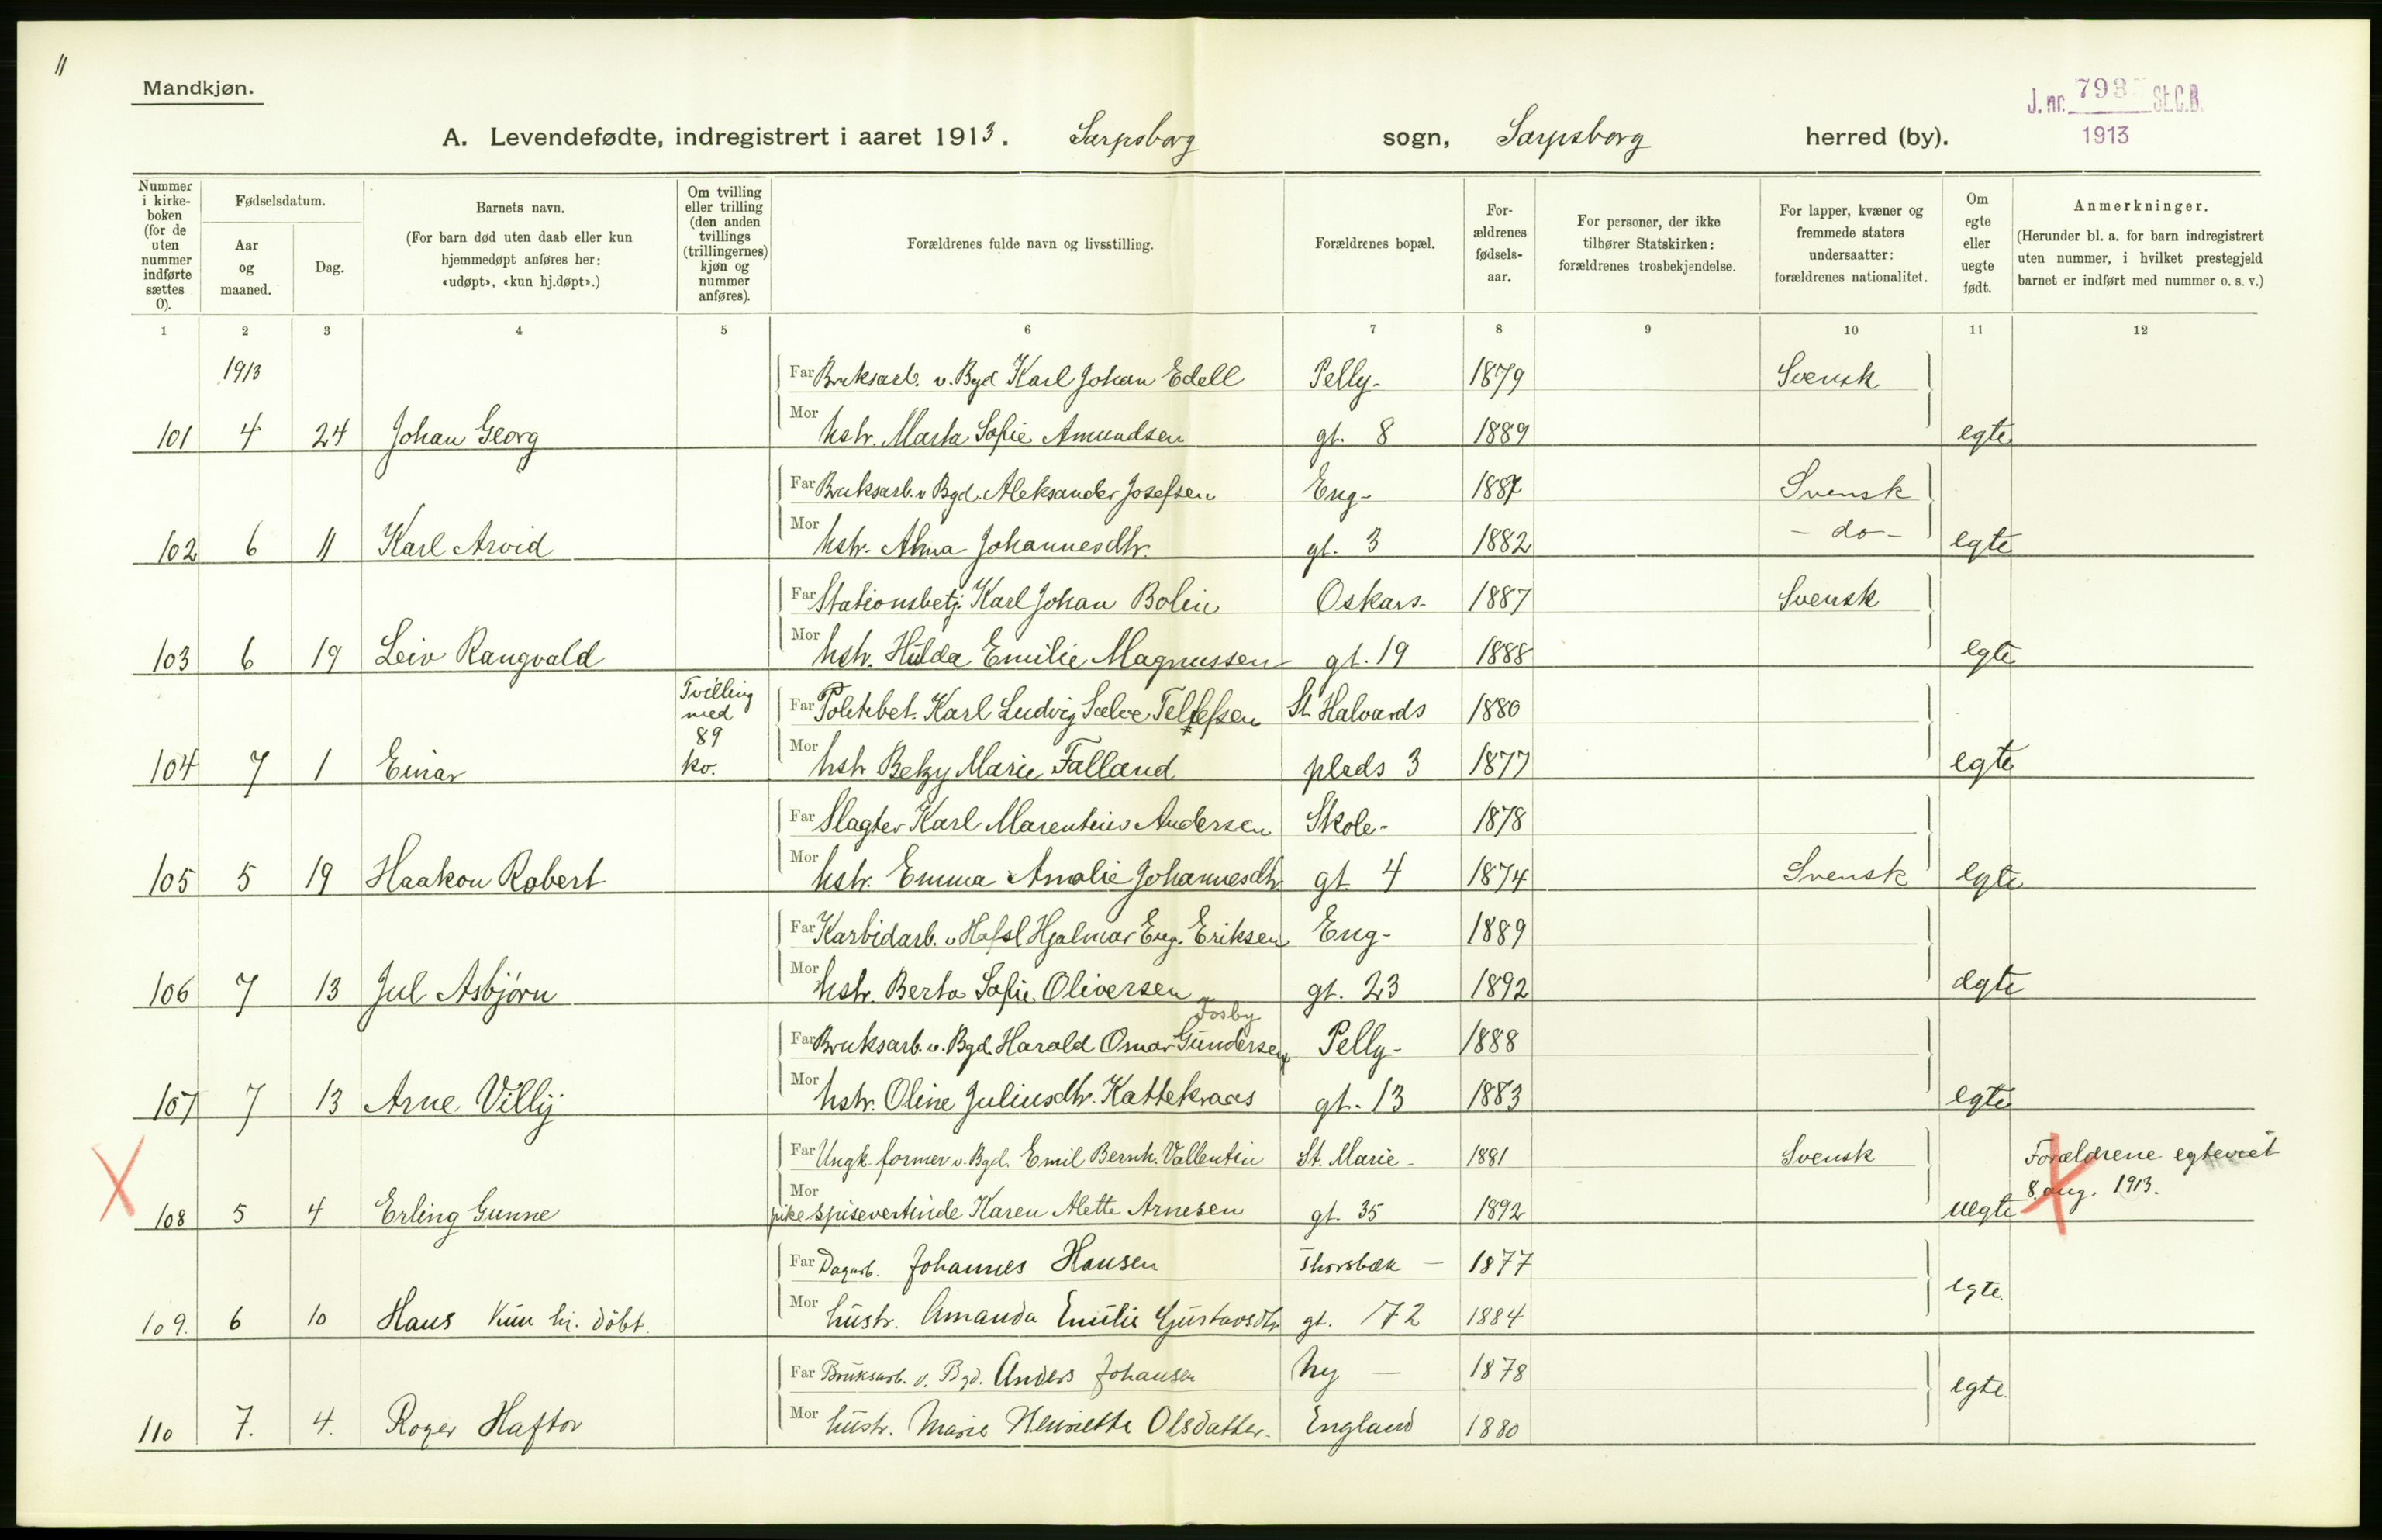 11
Mandkjøn.
J. nr. 793 St.C.B.
1913
A. Levendefødte, indregistrert i aaret 1913. Sarpsborg sogn, Sarpsborg herred (by).
Nummer i kirke-boken (for de uten nummer indførte sættes 0).
Fødselsdatum.
Aar og maaned.
Dag.
Barnets navn.
(For barn død uten daab eller kun hjemmedøpt anføres her: «udøpt», «kun hj.døpt».)
Om tvilling eller trilling (den anden tvillings (trillingernes) kjøn og nummer anføres).
Forældrenes fulde navn og livsstilling.
Forældrenes bopæl.
For-ældrenes fødsels-aar.
For personer, der ikke tilhører Statskirken: forældrenes trosbekjendelse.
For lapper, kvæner og fremmede staters undersaatter: forældrenes nationalitet.
Om egte eller uegte født.
Anmerkninger.
(Herunder bl. a. for barn indregistrert uten nummer, i hvilket prestegjeld barnet er indført med nummer o. s. v.)
1 2 3 4 5 6 7 8 9 10 11 12
1913
Far Bruksarb. v. Bgd Karl Johan Edell Pelly- 1879 Svensk
101 4 24 Johan Georg Mor hstr. Marta Sofie Amundsen gt. 8 1889 egte
Far Bruksarb. v Bgd. Aleksander Josefsen Eng- 1887 Svensk
102 6 11 Karl Arvid Mor hstr. Alma Johannesdtr. gt. 3 1882 - do - egte
Far Stationsbetj. Karl Johan Bolin Oskars- 1887 Svensk
103 6 19 Leiv Rangvald Mor hstr. Hilda Emilie Magnussen gt. 19 1888 egte
Tvilling
med
89
ko.
Far Politibet. Karl Ludvig Sælve Tellefsen St Halvards 1880
104 7 1 Einar Mor hstr Betzy Marie Falland plads 3 1877 egte
Far Slagter Karl Marentius Andersen Skole- 1878
105 5 19 Haakon Robert Mor hstr. Emma Amalie Johannesdtr. gt. 4 1874 Svensk egte
Far Karbidarb. v Hafsl Hjalmar Eug. Eriksen Eng- 1889
106 7 13 Jul Asbjörn Mor hstr. Berta Sofie Oliversen gt. 23 1892 egte
Fosby
Far Bruksarb. v. Bgd. Harald Omar Gundersen Pelly- 1888
107 7 13 Arne Villy Mor hstr. Oline Juliusdtr. Kattekraas gt. 13 1883 egte
Far Ungk. former v. Bgd. Emil Bernh. Vallentin St. Marie- 1881 Svensk Forældrene egteviet
108 5 4 Erling Gunne Mor pike spisevertinde Karen Alette Arnesen gt. 35 1892 uegte 8. aug. 1913.
Far Dagarb. Johannes Hansen Thorsbæk - 1877
109. 6 10 Hans Kun hj. döbt. Mor hustr. Amanda Emilie Gustavsdtr gt. 172 1884 egte.
Far Bruksarb. v. Bgd. Anders Johansen Ny - 1878
110 7. 4. Roger Haftor Mor hustr. Marie Henriette Olsdatter. England 1880 egte.